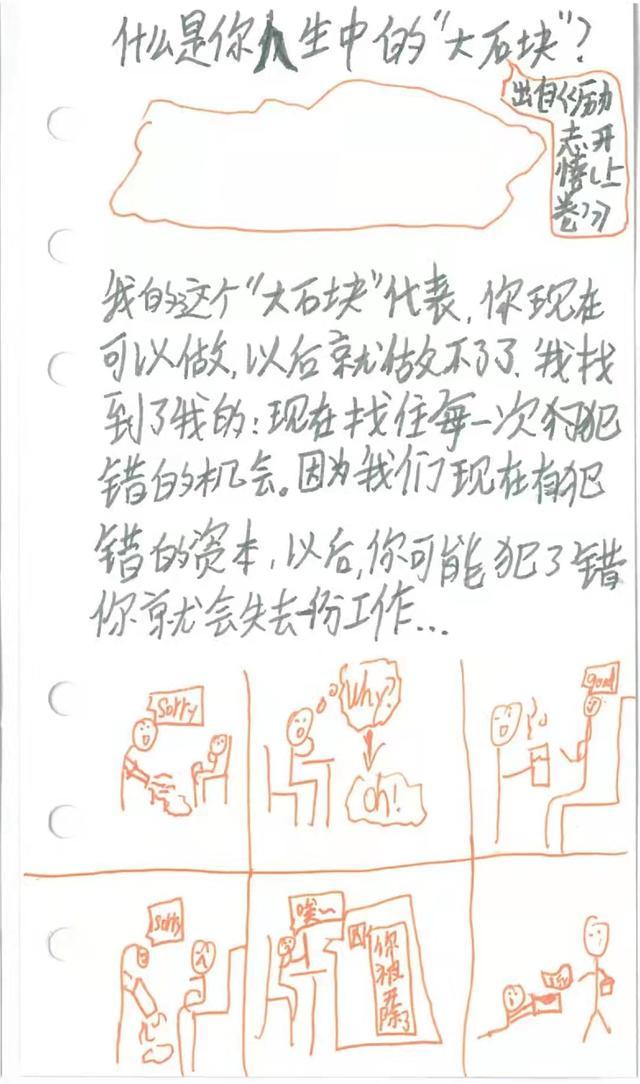 什么是你人生中的“大石块”?
出自《励
志开
悟(上
卷)》
我的这个“大石块”代表,你现在
可以做,以后就做不了了.我找
到了我的:现在找住每一次犯
错的机会。因为我们现在有犯
错的资本,以后,你可能犯了错
你就会失去一份工作...
Sorry
Why?
oh!
good
Sorry
唉~
你被开除了